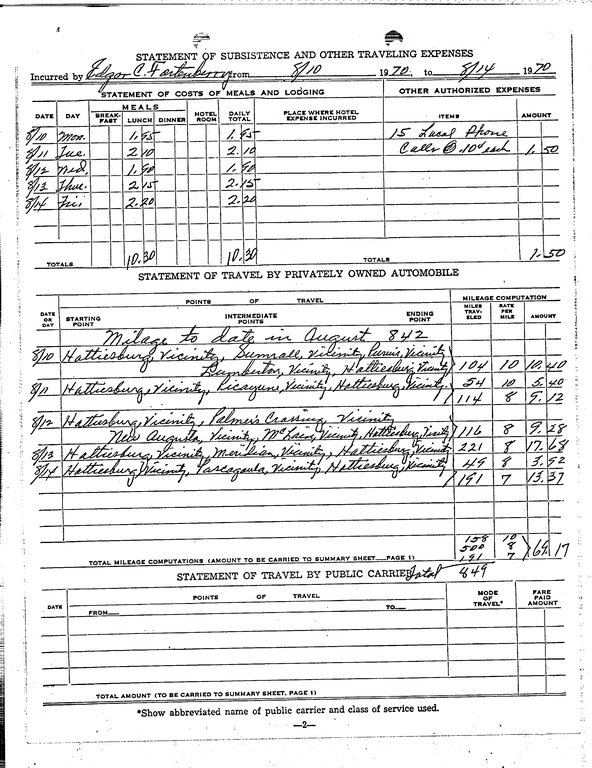 STATEMENT OF SUBSISTENCE AND OTHER TRAVELING EXPENSES
Incurred by Edgar C. Fortenberry from 8/10 1970, to 8/14 1970
STATEMENT OF COSTS OF MEALS AND LODGING OTHER AUTHORIZED EXPENSES
DATE DAY MEALS BREAK-FAST LUNCH DINNER HOTEL ROOM DAILY TOTAL PLACE WHERE HOTEL EXPENSE INCURRED ITEMS AMOUNT
8/10 Mon. 1.95 1.95 15 Local Phone
8/11 Tue. 2.10 2.10 Calls @ .10¢ each 1.50
8/12 Wed. 1.90 1.90
8/13 Thur. 2.15 2.15
8/14 Fri. 2.20 2.20
TOTALS 10.30 10.30 TOTALS 1.50
STATEMENT OF TRAVEL BY PRIVATELY OWNED AUTOMOBILE
DATE OR DAY POINTS OF TRAVEL MILEAGE COMPUTATION
STARTING POINT INTERMEDIATE POINTS ENDING POINT MILES TRAV-ELED RATE PER MILE AMOUNT
Milage to date in August 842
8/10 Hattiesburg, Vicinity, Sumrall, Vicinity, Purvis, Vicinity
Lumberton, Vicinity, Hattiesburg, Vicinity 104 10 10.40
8/11 Hattiesburg, Vicinity, Picayune, Vicinity, Hattiesburg, Vicinity 54 10 5.40
114 8 9.12
8/12 Hattiesburg, Vicinity, Palmer's Crossing, Vicinity
New Augusta, Vicinity, McLain, Vicinity, Hattiesburg, Vicinity 116 8 9.28
8/13 Hattiesburg, Vicinity, Meridian, Vicinity, Hattiesburg, Vicinity 221 8 17.68
8/14 Hattiesburg, Vicinity, Pascagoula, Vicinity, Hattiesburg, Vicinity 49 8 3.92
191 7 13.37
158 10
500 8 69.17
TOTAL MILEAGE COMPUTATIONS (AMOUNT TO BE CARRIED TO SUMMARY SHEET PAGE 1) 191 7
STATEMENT OF TRAVEL BY PUBLIC CARRIER Total 849
DATE POINTS OF TRAVEL MODE OF TRAVEL* FARE PAID AMOUNT
FROM TO
TOTAL AMOUNT (TO BE CARRIED TO SUMMARY SHEET, PAGE 1)
*Show abbreviated name of public carrier and class of service used.
—2—